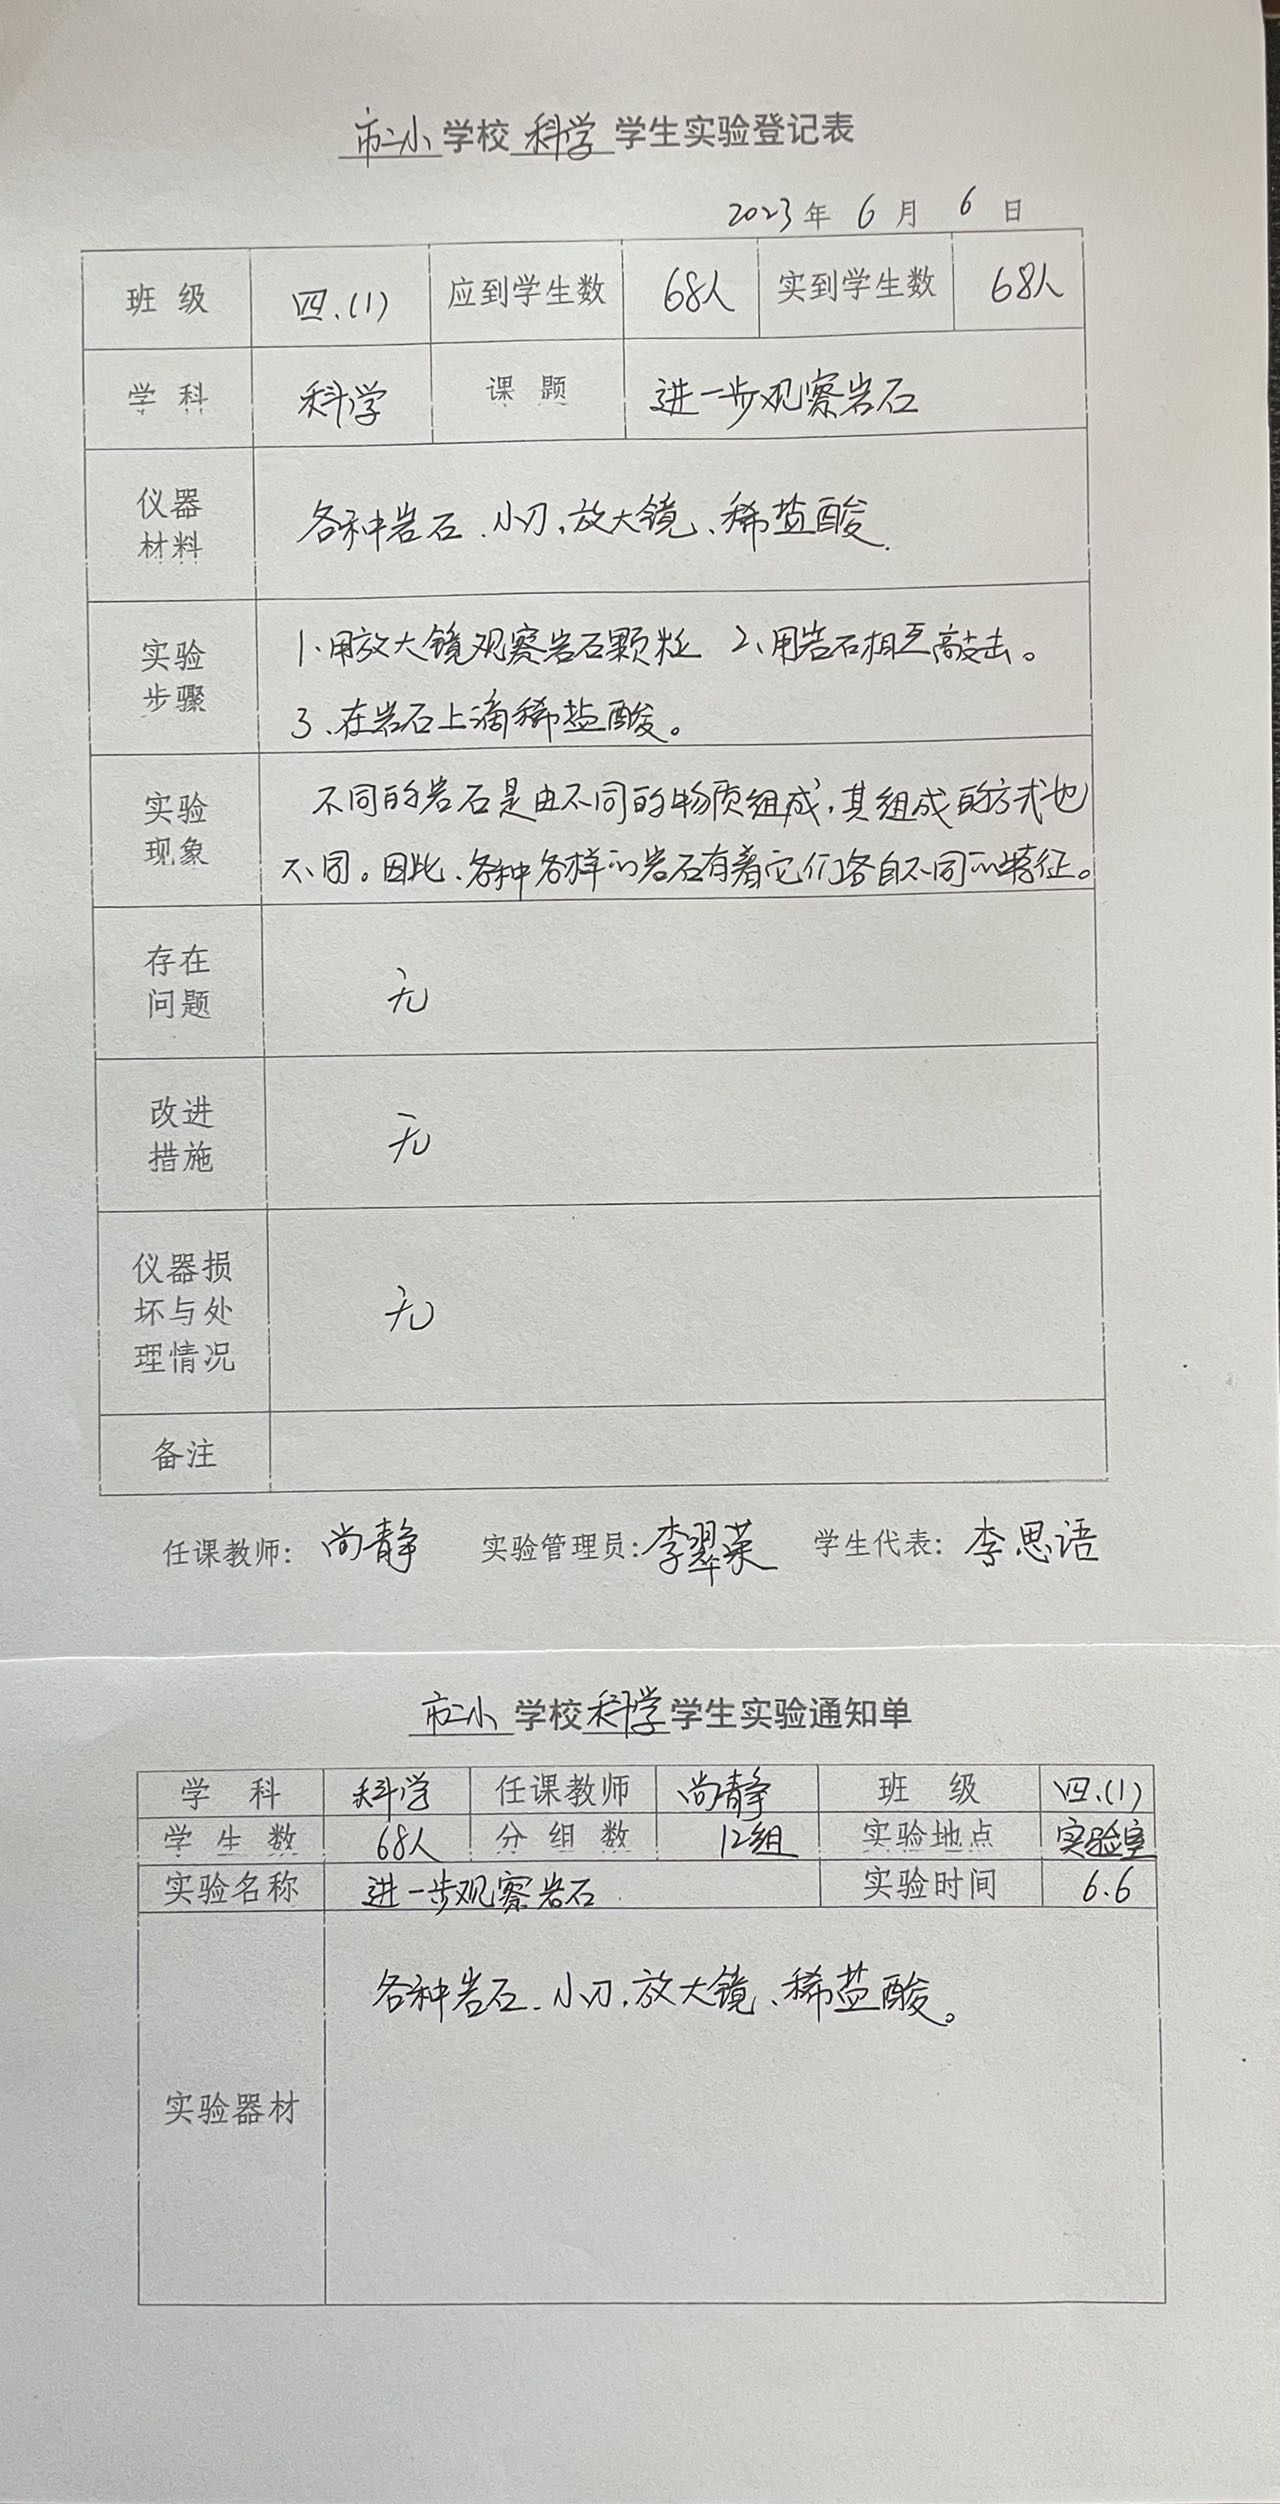 市二小学校科学学生实验登记表
2023年6月6日
班级 四.(1) 应到学生数 68人 实到学生数 68人
学科 科学 课题 进一步观察岩石
仪器
材料
各种岩石、小刀,放大镜、稀盐酸.
实验
步骤
1、用放大镜观察岩石颗粒 2、用岩石相互敲击。
3、在岩石上滴稀盐酸。
实验
现象
不同的岩石是由不同的物质组成,其组成的方式也
不同。因此、各种各样的岩石有着它们各自不同的特征。
存在
问题
无
改进
措施
无
仪器损
坏与处
理情况
无
备注
任课教师: 尚静 实验管理员:李翠荣 学生代表: 李思语
市二小学校科学学生实验通知单
学科 科学 任课教师 尚静 班级 四.(1)
学生数 68人 分组数 12组 实验地点 实验室
实验名称 进一步观察岩石. 实验时间 6.6
实验器材
各种岩石、小刀,放大镜、稀盐酸。